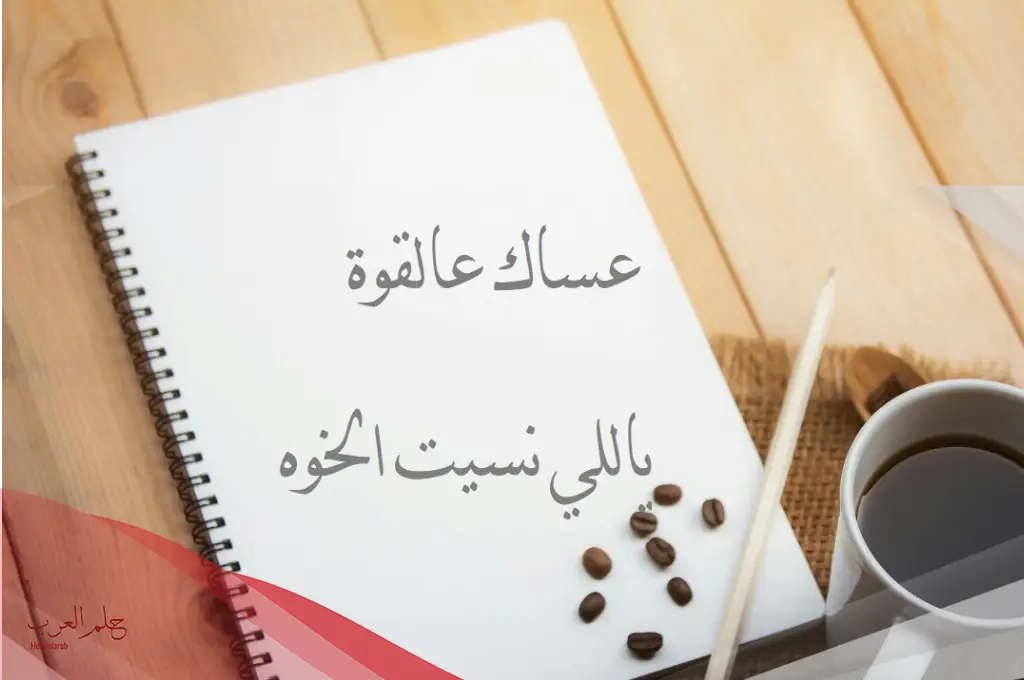 عساك عالقوة
ياللي نسيت الخوه
حلم العرب